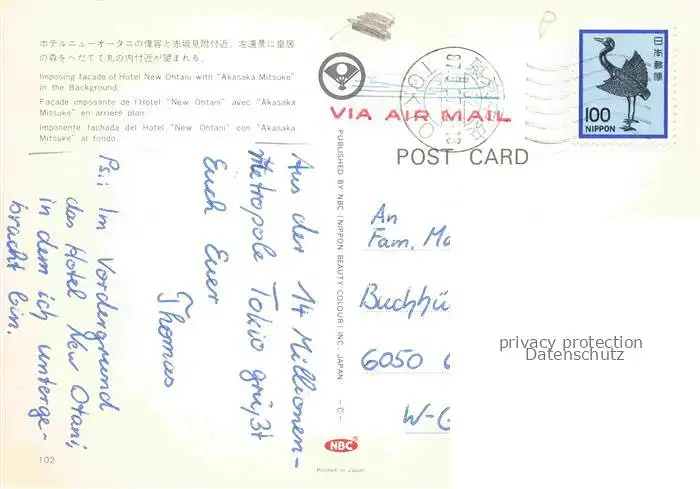 ホテルニューオータニの偉容と赤坂見附付近、左遠景に皇居
の森をへだてて丸の内付近が望まれる。
Imposing facade of Hotel New Ohtani with "Akasaka Mitsuke"
in the Background.
Façade imposante de l'Hotel "New Ohtani" avec "Akasaka
Mitsuke" en arrière plan.
Imponente fachada del Hotel "New Ohtani" con "Akasaka
Mitsuke" al fondo.
Aus der 14 Millionen-
Metropole Tokio grüßt
Euch Euer
Thomas
Ps.: Im Vordergrund
das Hotel New Otani,
in dem ich unterge-
bracht bin.
102
PUBLISHED BY NBC (NIPPON BEAUTY COLOUR) INC., JAPAN
NBC
Printed in Japan
TOKYO
VIA AIR MAIL
POST CARD
日本郵便
100
NIPPON
P
An
Fam. Ma
Buchhü
6050
W-G
privacy protection
Datenschutz